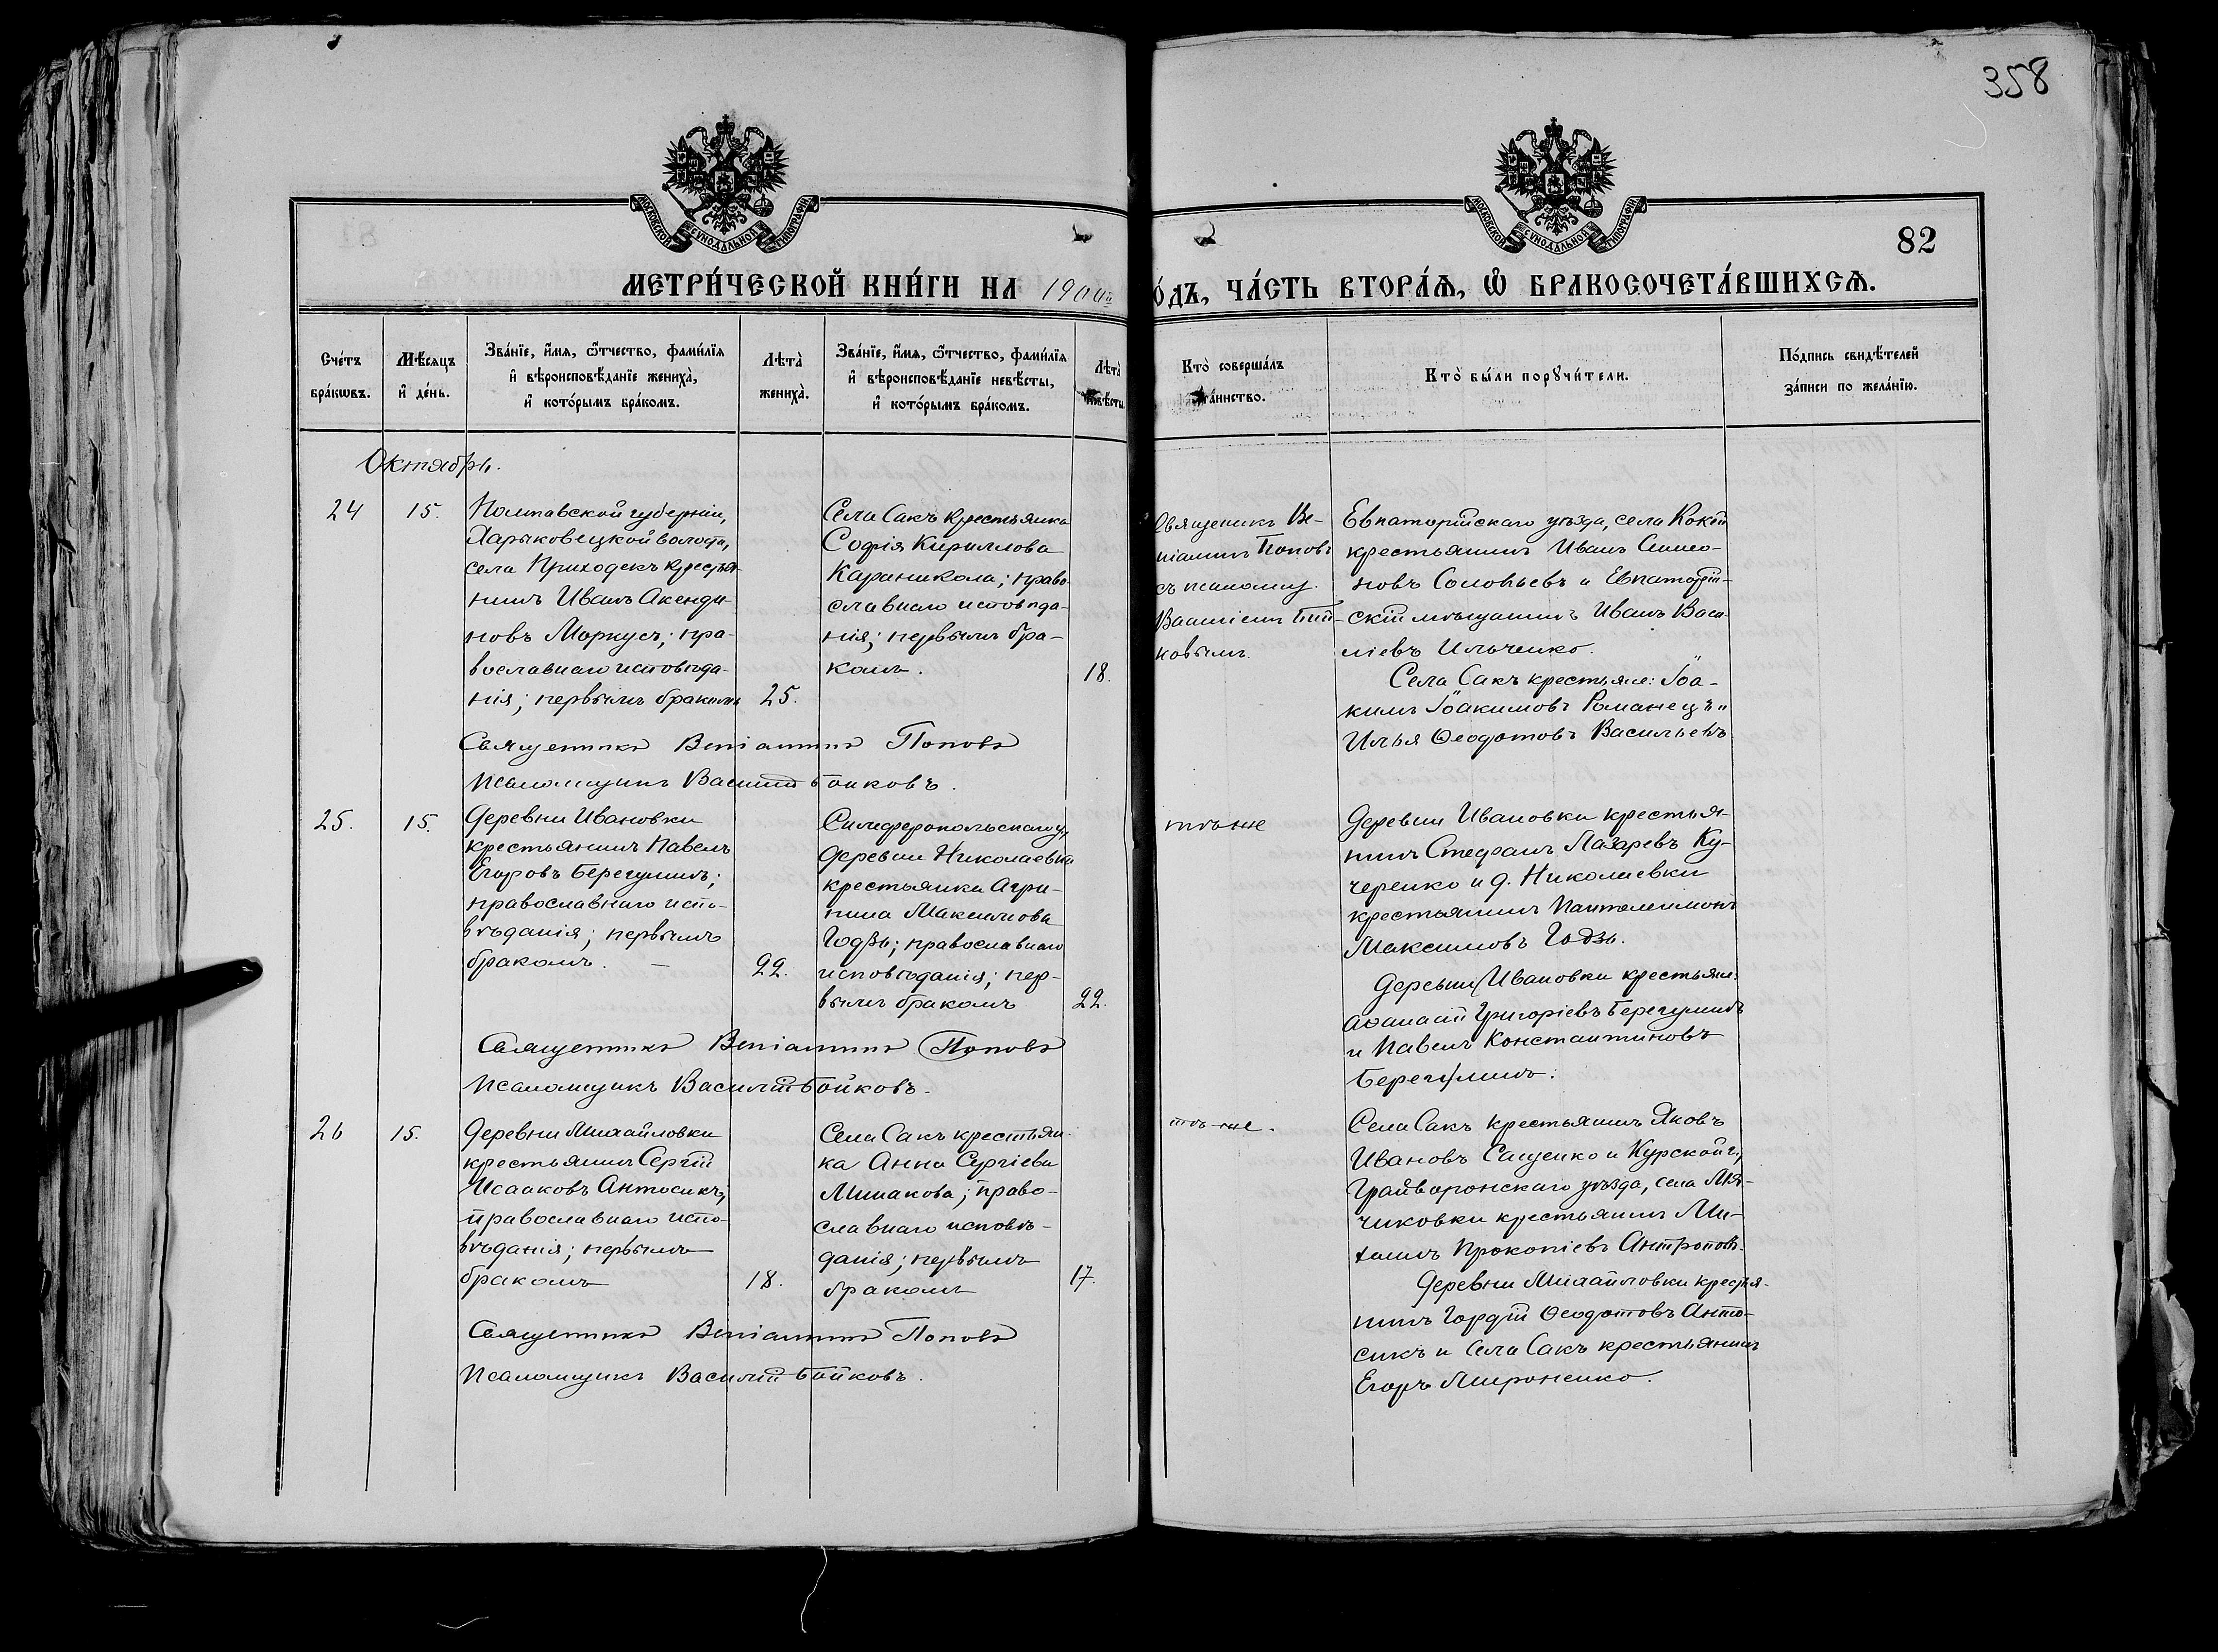 358
МОСКОВСКОЙ СѴНОДАЛЬНОЙ ТИПОГРАФІИ
МОСКОВСКОЙ СѴНОДАЛЬНОЙ ТИПОГРАФІИ
82
МЕТРИ́ЧЕСКОЙ КНИ́ГИ НА 1900й
О́ДЪ, ЧА́СТЬ ВТОРА́Ѧ, Ѡ҆ БРАКОСОЧЕТА́ВШИХСѦ.
Сче́тъ бра́кѡвъ.
Мѣ́сяцъ и҆ де́нь.
Зва́нїе, и҆́мя, ѻ҆́тчество, фами́лїя
и҆ вѣроисповѣ́данїе жениха̀,
и҆ кото́рымъ бра́комъ.
Лѣта̀ жениха̀.
Зва́нїе, и҆́мя, ѻ҆́тчество, фами́лїя
и҆ вѣроисповѣ́данїе невѣ́сты,
и҆ кото́рымъ бра́комъ.
Лѣта̀ невѣ́сты.
Кто̀ соверша́лъ
та́инство.
Кто̀ бы́ли порꙋчи́тели.
По́дпись свидѣ́телей
за́писи по жела́нїю.
Октябрь.
24
15.
Полтавской губерніи,
Харьковецкой волости,
села Приходекъ крестья-
нинъ Иванъ Акенди-
новъ Моркусъ; пра-
вославнаго исповѣда-
нія; первымъ бракомъ
25.
Села Сакъ крестьянка
София Кириллова
Караникола; право-
славнаго исповѣда-
нія; первымъ бра-
комъ.
18.
Священикъ Ве-
ніаминъ Поповъ
съ псаломщ.
Василіемъ Бой-
ковымъ.
Евпаторійскаго уѣзда, села
крестьянинъ Иванъ Симео-
новъ Соловьевъ и Евпаторій-
скій мѣщанинъ Иванъ Васи-
ліевъ Ильченко.
Села Сакъ крестьяне: Іоа-
кимъ Іоакимовъ Романецъ и
Илья Ѳеодотовъ Васильевъ
Священникъ Веніаминъ Поповъ
Псаломщикъ Василій Бойковъ.
25.
15.
Деревни Ивановки
крестьянинъ Павелъ
Егоровъ Берегулинъ;
православнаго испо-
вѣданія; первымъ
бракомъ. —
22.
Симферопольскаго у,
деревни Николаевки
крестьянка Агри-
пина Максимова
Годзь; православнаго
исповѣданія; пер-
вымъ бракомъ
22.
тѣ-же
Деревни Ивановки крестья-
нинъ Стефанъ Лазаревъ Ку-
черенко и д. Николаевки
крестьянинъ Пантелеимонъ
Максимовъ Годзь.
Деревни Ивановки крестьяне:
Аѳанасій Григоріевъ Берегулинъ
и Павелъ Константиновъ
Берегулинъ.
Священникъ Веніаминъ Поповъ
Псаломщикъ Василій Бойковъ.
26
15.
Деревни Михайловки
крестьянинъ Сергій
Исааковъ Антосикъ;
православнаго испо-
вѣданія; первымъ
бракомъ
18.
Села Сакъ крестьян-
ка Анна Сергіева
Мишакова; право-
славнаго исповѣ-
данія; первымъ
бракомъ
17.
тѣ-же.
Села Сакъ крестьянинъ Яковъ
Ивановъ Сащенко и Курской г.,
Грайворонскаго уѣзда, села
чиковки крестьянинъ Ми-
хаилъ Прокопіевъ Антроповъ.
Деревни Михайловки крестья-
нинъ Гордій Ѳеодотовъ Анто-
сикъ и села Сакъ крестьянинъ
Егоръ Мироненко.
Священникъ Веніаминъ Поповъ
Псаломщикъ Василій Бойковъ.